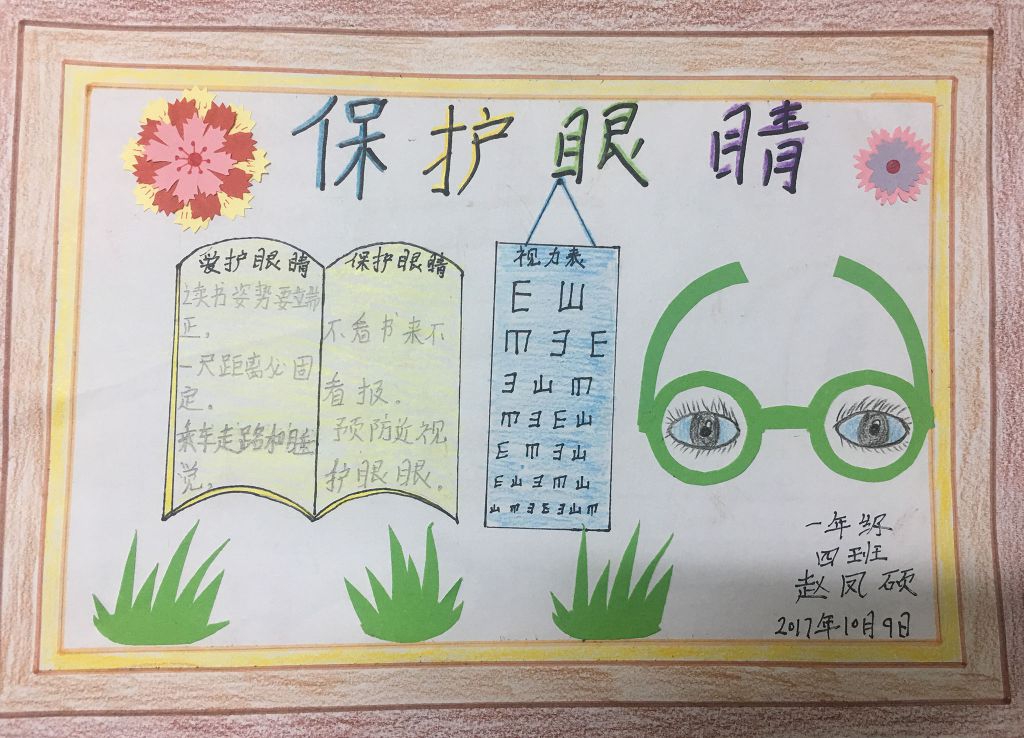 保护眼睛
爱护眼睛
读书姿势要端
正。
一尺距离必固
定。
乘车走路和睡
觉。
保护眼睛
不看书来不
看报。
预防近视
护眼眼。
视力表
E Ш
M Ǝ E
Ǝ Ш M
M Ǝ E Ш
E M Ǝ Ш
E Ш Ǝ M Ш
Ш M Ǝ E Ǝ Ш M
一年级
四班
赵凤硕
2017年10月9日